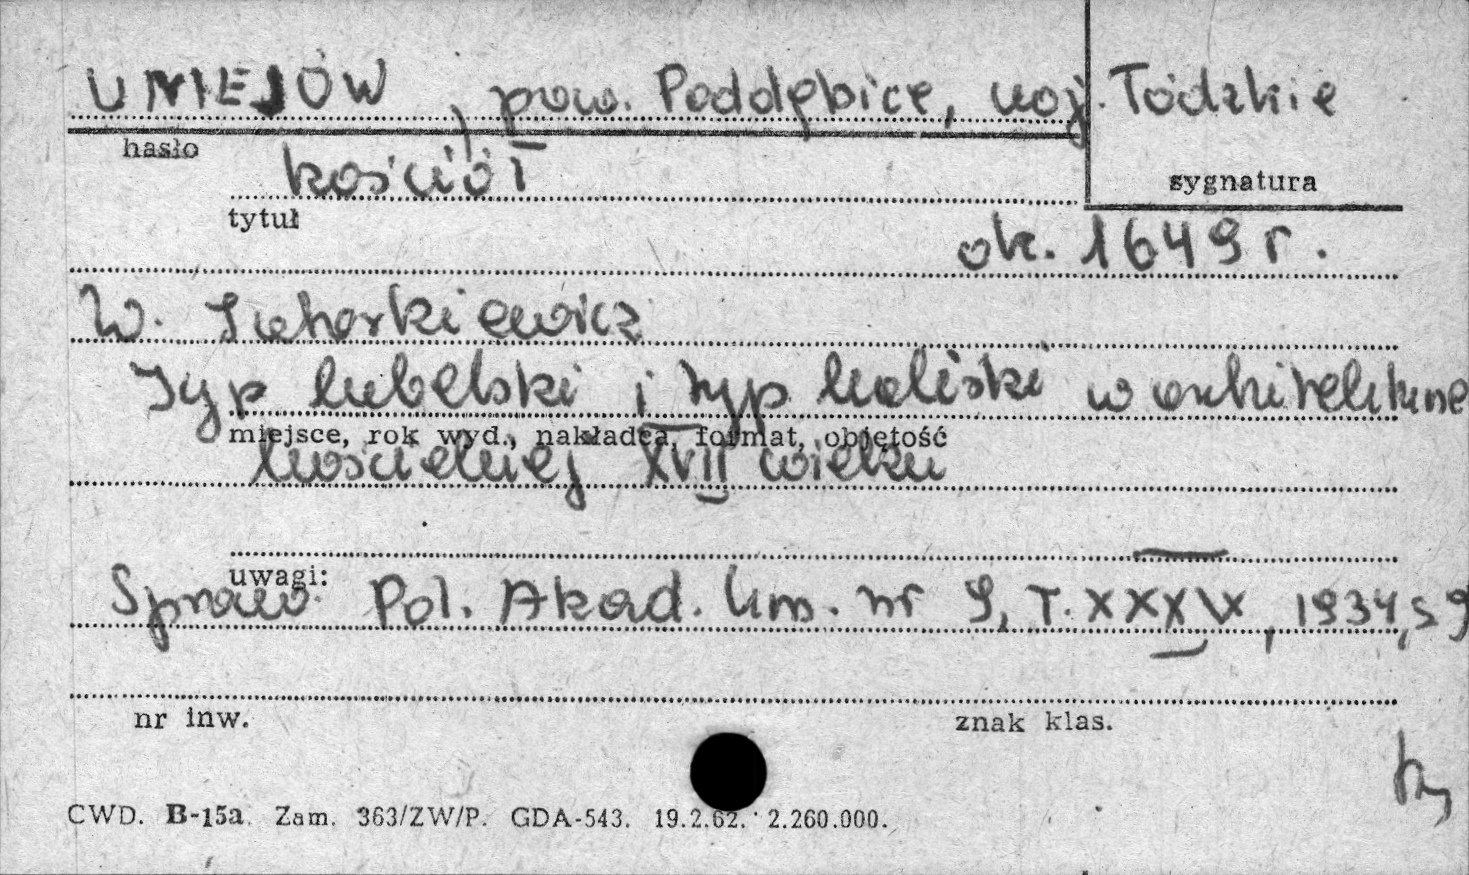 UNIEJÓW, pow. Poddębice, woj. Łódzkie
hasło
kościół
sygnatura
tytuł
ok. 1649 r.
W. Tatarkiewicz
Typ lubelski i typ kaliski w architekturze
miejsce, rok wyd., nakładca, format, objętość
kościelnej XVII wieku
uwagi:
Spraw. Pol. Akad. Um. nr 9, T. XXXIX, 1934, s 9
nr inw.
znak klas.
CWD. B-15a. Zam. 363/ZW/P. GDA-543. 19.2.62. 2.260.000.